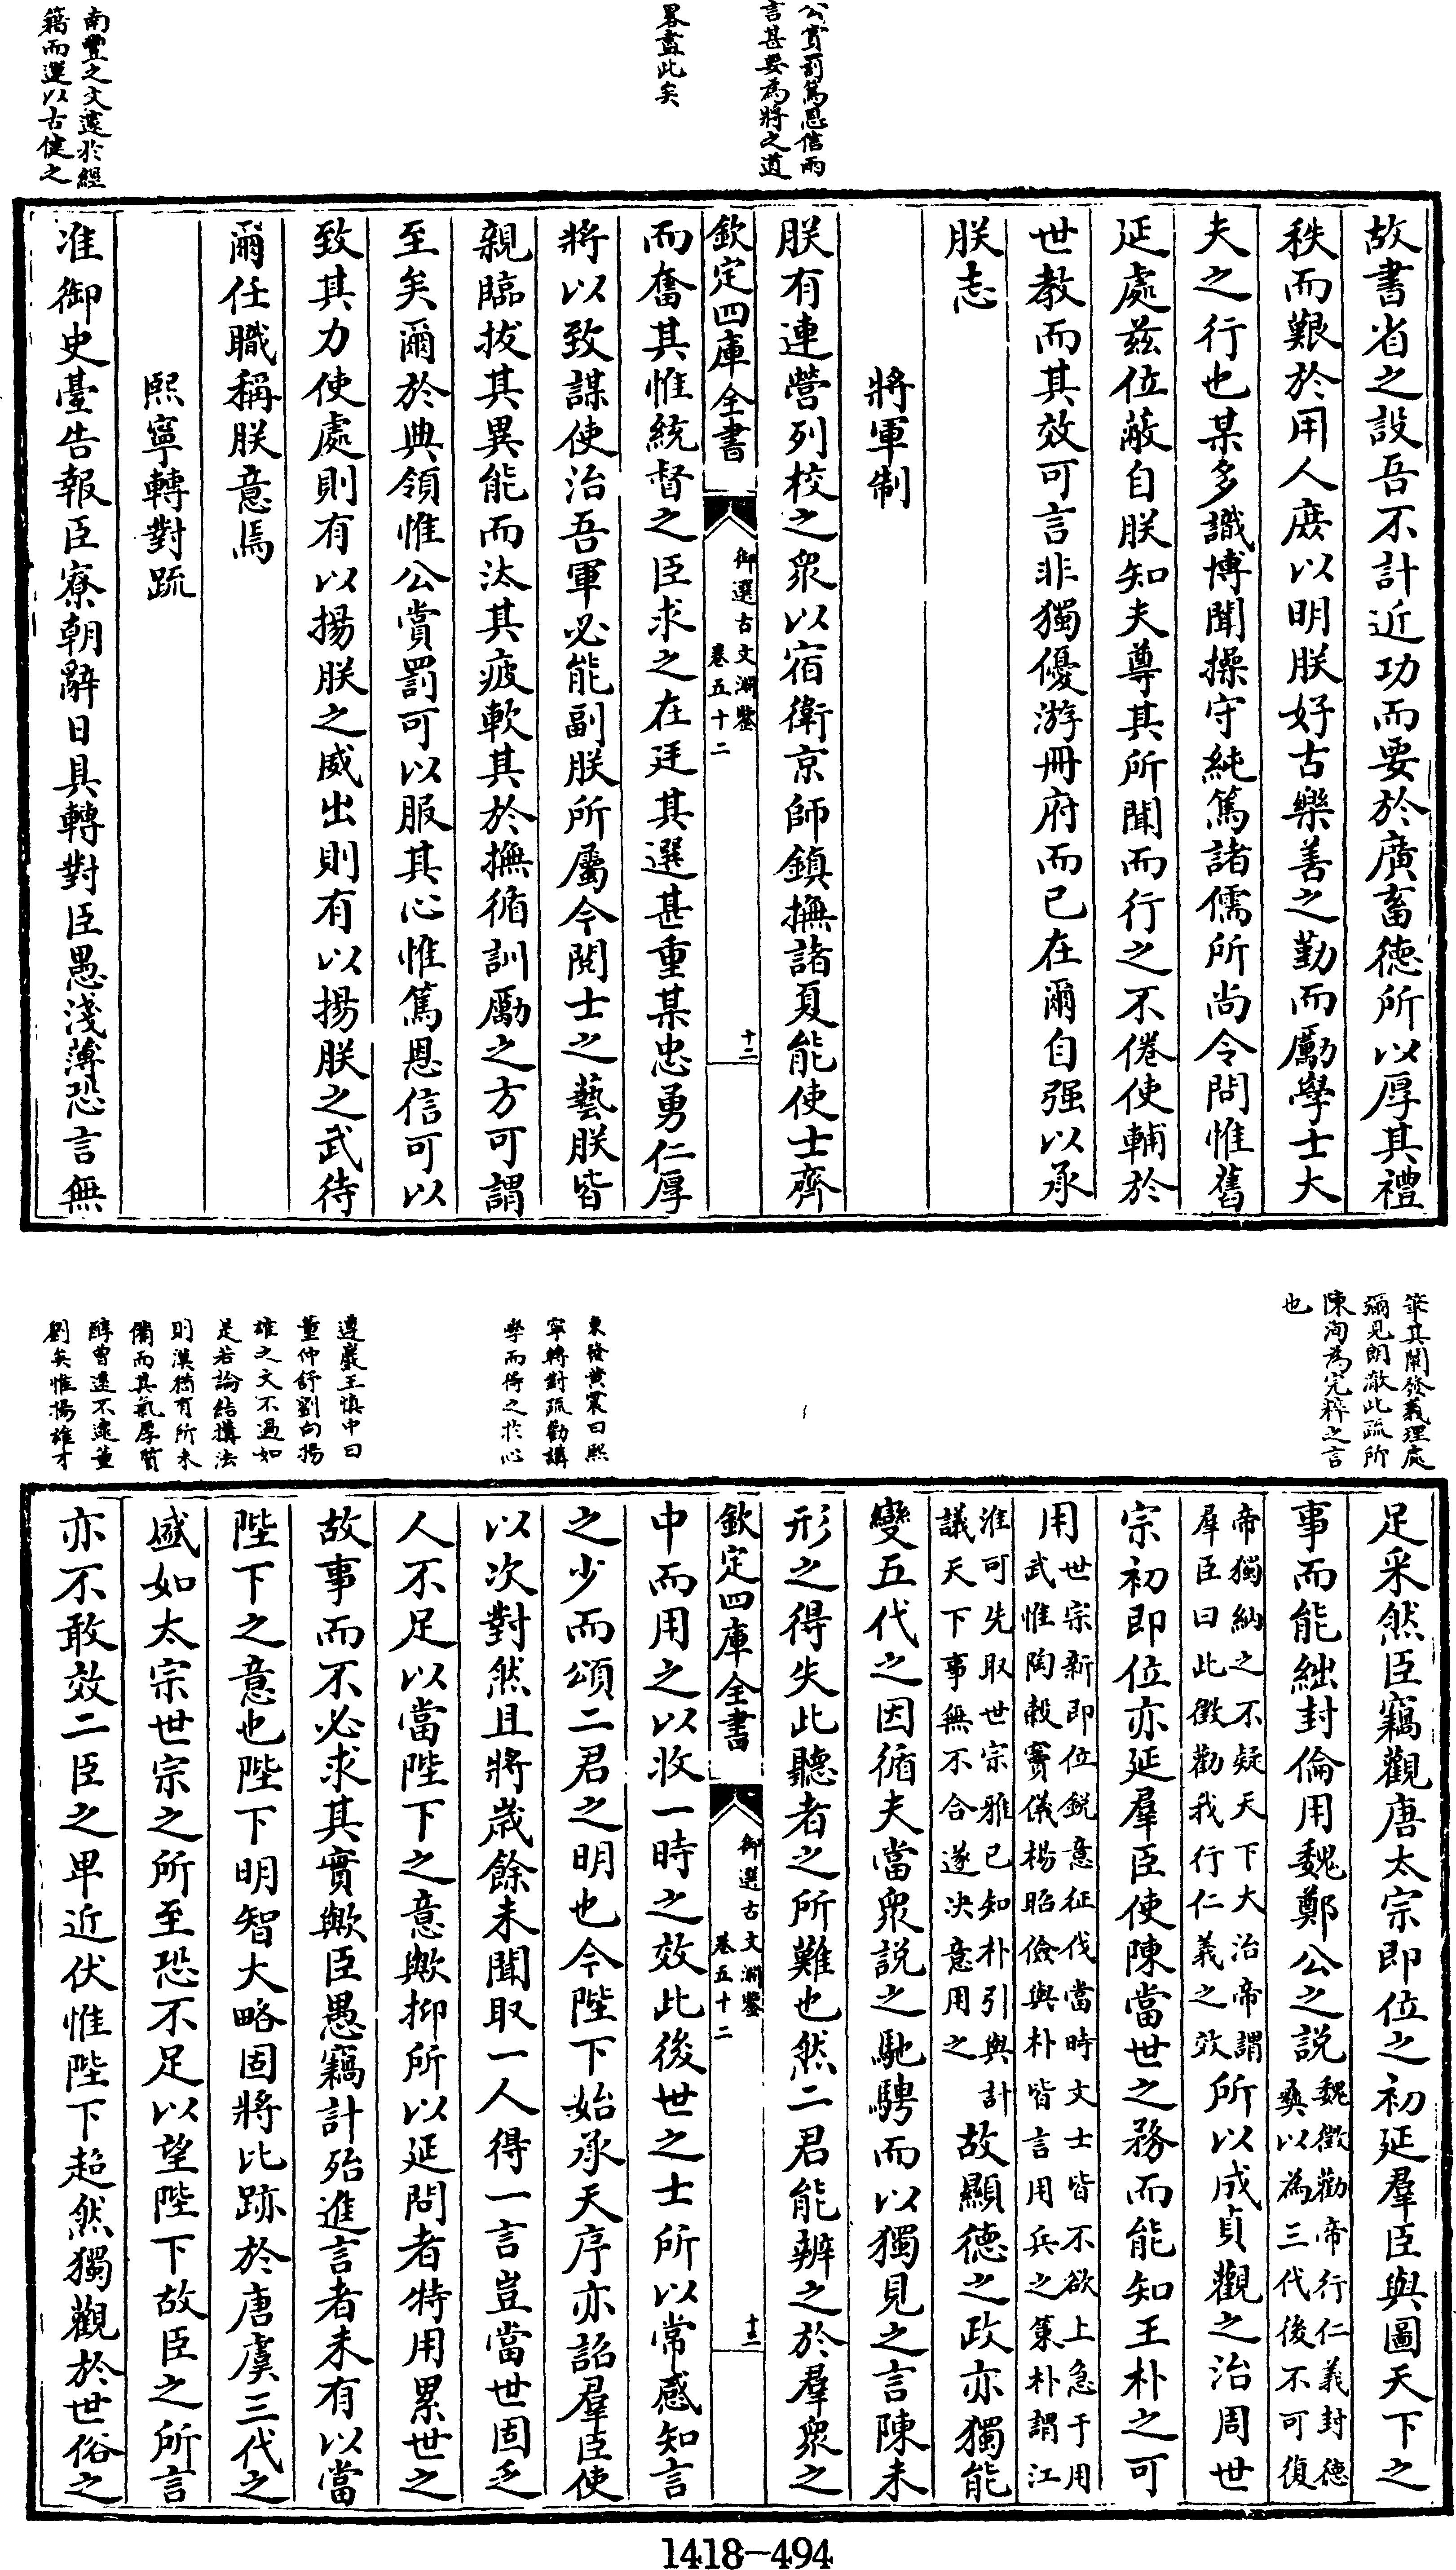 公賞罰篤恩信兩
言甚要為將之道
畧盡此矣
南豐之文邃於經
籍而運以古健之
故書省之設吾不計近功而要於廣畜徳所以厚其禮
秩而艱於用人庶以明朕好古樂善之勤而厲學士大
夫之行也某多識博聞操守純篤諸儒所尚令問惟舊
延處兹位蔽自朕知夫尊其所聞而行之不倦使輔於
世教而其效可言非獨優游冊府而已在爾自强以承
朕志
將軍制
朕有連營列校之衆以宿衛京師鎮撫諸夏能使士齊
欽定四庫全書
御選古文淵鑒
卷五十二
十二
而奮其惟統督之臣求之在廷其選甚重某忠勇仁厚
將以致謀使治吾軍必能副朕所屬今閱士之藝朕皆
親臨抜其異能而汰其疲軟其於撫循訓厲之方可謂
至矣爾於典領惟公賞罰可以服其心惟篤恩信可以
致其力使處則有以揚朕之威出則有以揚朕之武待
爾任職稱朕意焉
熙寧轉對疏
准御史臺告報臣寮朝辭日具轉對臣愚淺薄恐言無
筆其闡發義理處
彌見朗澈此疏所
陳洵為完粹之言
也
東發黄震曰熙
寧轉對疏勸講
學而得之於心
遵巖王慎中曰
董仲舒劉向揚
雄之文不過如
是若論結構法
則漢猶有所未
備而其氣厚質
醇曽遠不逮董
劉矣惟揚雄才
足采然臣竊觀唐太宗即位之初延羣臣與圖天下之
事而能絀封倫用魏鄭公之說魏徵勸帝行仁義封德
彞以為三代後不可復
帝獨納之不疑天下大治帝謂
羣臣曰此徵勸我行仁義之效所以成貞觀之治周世
宗初即位亦延羣臣使陳當世之務而能知王朴之可
用世宗新即位銳意征伐當時文士皆不欲上急于用
武惟陶穀竇儀楊昭儉與朴皆言用兵之䇿朴謂江
淮可先取世宗雅已知朴引與計
議天下事無不合遂决意用之故顯德之政亦獨能
變五代之因循夫當衆說之馳騁而以獨見之言陳未
形之得失此聽者之所難也然二君能辨之於羣衆之
欽定四庫全書
御選古文淵鑒
卷五十二
十三
中而用之以收一時之效此後世之士所以常感知言
之少而頌二君之明也今陛下始承天序亦詔羣臣使
以次對然且將歳餘未聞取一人得一言豈當世固乏
人不足以當陛下之意歟抑所以延問者特用累世之
故事而不必求其實歟臣愚竊計殆進言者未有以當
陛下之意也陛下明智大略固將比跡於唐虞三代之
盛如太宗世宗之所至恐不足以望陛下故臣之所言
亦不敢效二臣之卑近伏惟陛下超然獨觀於世俗之
1418-494